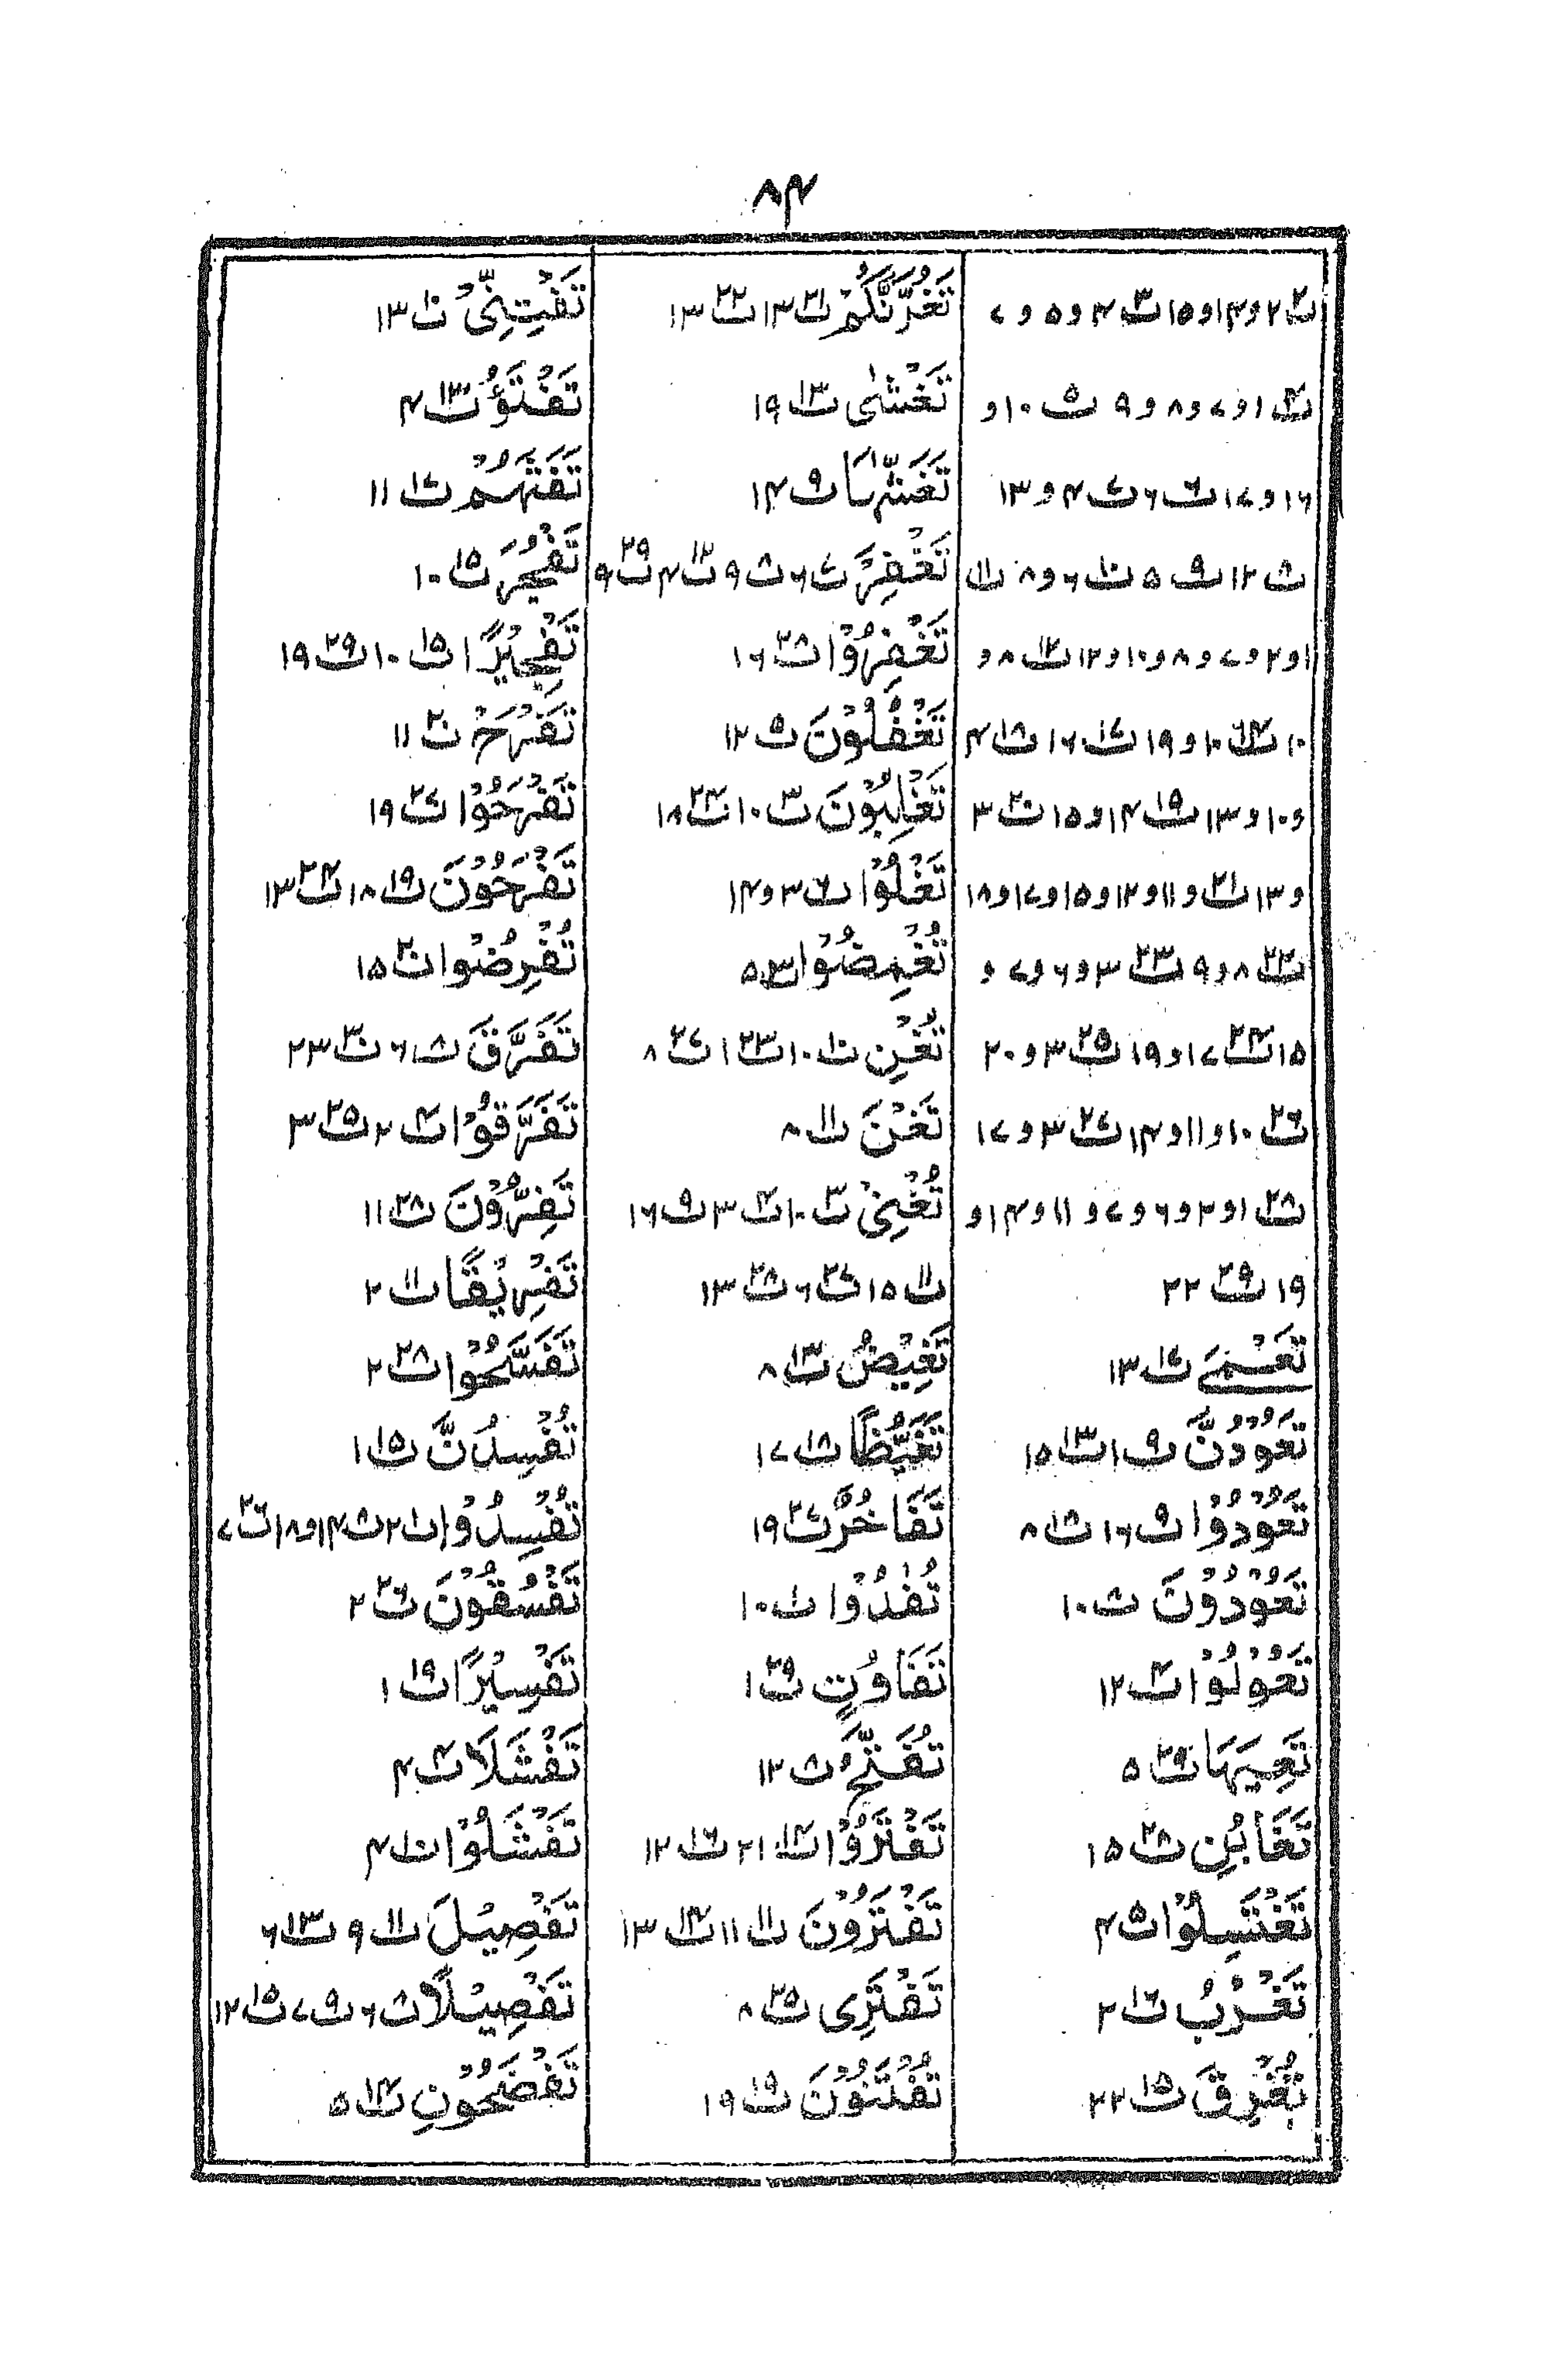 ۸۴
ت۲ ۲و۱۴و۱۵ ت۳ ۴و۵و۷
ت۴ ۱و۷و۸و۹ ت۵ ۱۰و
۱۶و۱۷ ت۶ ۶ ت۷ ۴و۱۳
ت۸ ۱۲ ت۹ ۵ ت۱۰ ۶و۸ ت۱۱
۱و۲و۷و۸و۱۰و۱۲ ت۱۲ ۸و
۱۰ ت۱۴ ۱۰و۱۹ ت۱۷ ۱۶ ت۱۸ ۴
و۱۰و۱۳ ت۱۹ ۱۴و۱۵ ت۲۰ ۳
و۱۳ ت۲۱ و۱۱و۱۲و۱۵و۱۷و۱۸
ت۲۲ ۸و۹ ت۲۳ ۳و۶و۷و
۱۵ ت۲۴ ۱۷و۱۹ ت۲۵ ۳و۲۰
ت۲۶ ۱۰و۱۱و۱۴ ت۲۷ ۳و۱۷
ت۲۸ ۱و۲و۶و۷و۱۱و۱۴و
۱۹ ت۲۹ ۲۲
تَعْمَى ت۱۷ ۱۳
تَعُوْدُنَّ ت۹ ۱ ت۱۳ ۱۵
تَعُوْدُوْا ت۹ ۱۶ ت۱۸ ۸
تَعُوْدُوْنَ ت۸ ۱۰
تَعُوْلُوْا ت۴ ۱۲
تَعِيَهَا ت۲۹ ۵
تَغَابُنِ ت۲۸ ۱۵
تَغْتَسِلُوْا ت۵ ۴
تَغْرُبُ ت۱۶ ۲
تُغْرِقَ ت۱۵ ۲۲
تَغُرَّنَّكُمْ ت۲۱ ۱۳ ت۲۲ ۱۳
تَغْشٰى ت۱۳ ۱۹
تَغَشّٰهَا ت۹ ۱۴
تَغْفِرْ ت۷ ۶ ت۸ ۹ ت۱۲ ۴ ت۲۹ ۹
تَغْفِرُوْا ت۲۸ ۱۶
تَغْفُلُوْنَ ت۵ ۱۲
تَغْلِبُوْنَ ت۳ ۱۰ ت۲۴ ۱۸
تَغْلُوْا ت۶ ۳و۱۴
تُغْمِضُوْا ت۳ ۵
تُغْنِ ت۱۰ ۱۰ ت۲۳ ۱ ت۲۷ ۸
تَغْنَ ت۱۱ ۸
تُغْنِیْ ت۳ ۱۰ ت۴ ۳ ت۹ ۱۶
ت۱۱ ۱۵ ت۲۷ ۶ ت۲۸ ۱۳
تَغِيْضُ ت۱۳ ۸
تَغَيُّظًا ت۱۸ ۱۷
تَفَاخُرٌ ت۲۷ ۱۹
تُفٰدُوْا ت۱ ۱۰
تَفَاوُتٍ ت۲۹ ۱
تُفَتَّحُ ت۸ ۱۲
تَفْتَرُوْا ت۱۴ ۲۱ ت۱۶ ۱۲
تَفْتَرُوْنَ ت۱۱ ۱۱ ت۱۴ ۱۳
تَفْتَرِی ت۲۵ ۸
تُفْتَنُوْنَ ت۱۹ ۱۹
تَفْتِنِّیْ ت۱۰ ۱۳
تَفْتَؤُ ت۱۳ ۴
تَفَثَهُمْ ت۱۷ ۱۱
تَفْجُرَ ت۱۵ ۱۰
تَفْجِيْرًا ت۱۵ ۱۰ ت۲۹ ۱۹
تَفْرَحْ ت۲۰ ۱۱
تَفْرَحُوْا ت۲۷ ۱۹
تَفْرَحُوْنَ ت۱۹ ۱۸ ت۲۴ ۱۳
تُفْرِضُوْا ت۲ ۱۵
تَفَرَّقَ ت۸ ۶ ت۳۰ ۲۳
تَفَرَّقُوْا ت۴ ۲ ت۲۵ ۳
تَفِرُّوْنَ ت۲۸ ۱۱
تَفْرِيْقًا ت۱۱ ۲
تَفَسَّحُوْا ت۲۸ ۲
تُفْسِدُنَّ ت۱۵ ۱
تُفْسِدُوْا ت۱ ۲ ت۸ ۱۴و۱۸ ت۲۶ ۷
تَفْسُقُوْنَ ت۲۶ ۲
تَفْسِيْرًا ت۱۹ ۱
تَفْشَلَا ت۴ ۴
تَفْشَلُوْا ت۱۰ ۴
تَفْصِيْلَ ت۱۱ ۹ ت۱۳ ۶
تَفْصِيْلًا ت۸ ۶ ت۹ ۷ ت۱۵ ۱۲
تَفْضَحُوْنِ ت۱۴ ۵